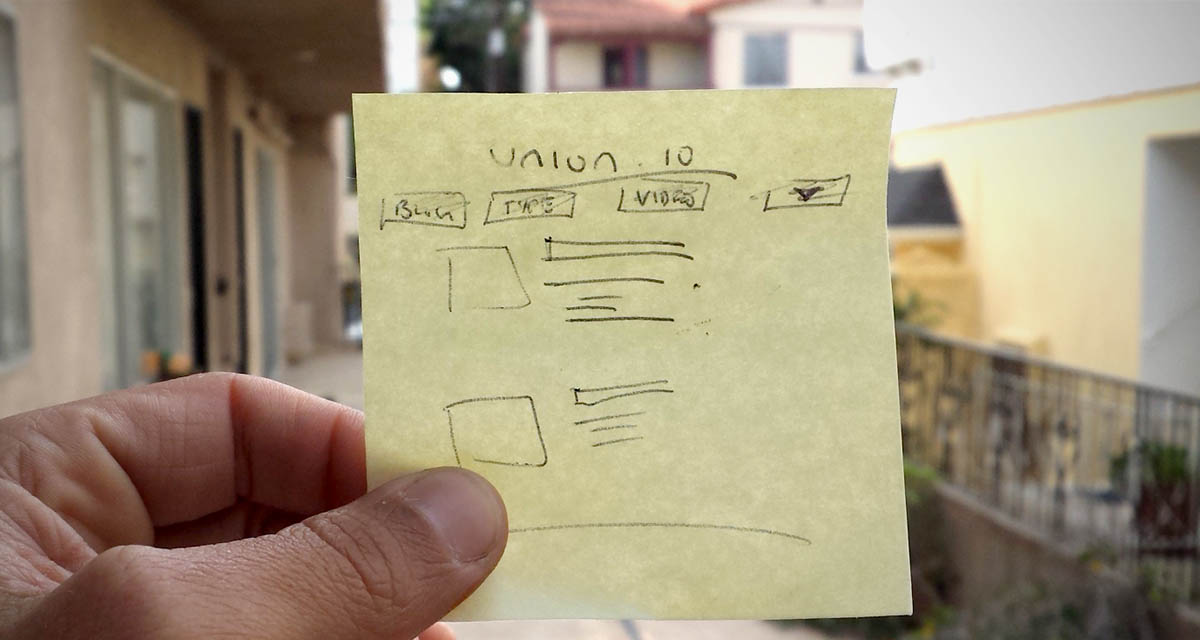 UNION.IO
BLOG TYPE VIDEO